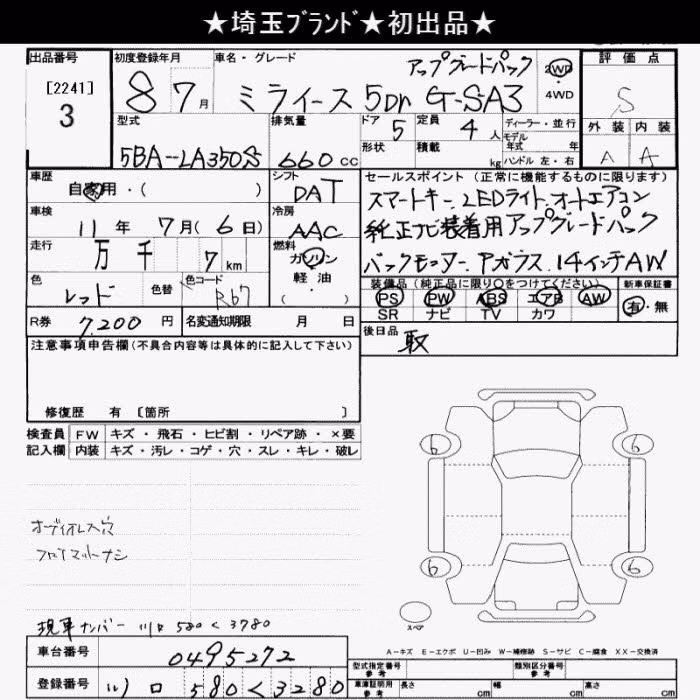 ★埼玉ﾌﾞﾗﾝﾄﾞ★初出品★
出品番号
[2241]
3
初度登録年月
8 7月
車名・グレード
アップグレードパック
ミライース 5Dr G-SA3
2WD
4WD
評価点
S
外装 内装
A A
型式
5BA-LA350S
排気量
660 cc
ドア 5
定員 4 人
形状
積載 kg
ディーラー・並行
モデル
年式 年
ハンドル 左・右
車歴
自家用・( )
シフト
DAT
車検
11年 7月(6日)
冷房
AAC
走行
万 千 7 km
燃料
ガソリン
軽油
・( )
色
レッド
色替
色コード
R67
R券 7,200 円
名変通知期限 月 日
セールスポイント (正常に機能するものに限ります)
スマートキー、LEDライト、オートエアコン
純正ナビ装着用アップグレードパック
バックモニター、Pガラス、14インチAW
装備品(純正品に限り○をつけてください)
PS PW ABS エアB AW
SR ナビ TV カワ
新車保証書
有・無
後日品
取
注意事項申告欄(不具合内容等は具体的に記入して下さい)
修復歴 有 [箇所 ]
検査員 FW キズ・飛石・ヒビ割・リペア跡・×要
記入欄 内装 キズ・汚レ・コゲ・穴・スレ・キレ・破レ
オーディオレス穴
フロアマットナシ
6 6
6 6
スペア
現車ナンバー 川口 580 く 3780
車台番号 0495272
登録番号 川口 580 く 3280
A-キズ E-エクボ U-凹み W-補修跡 S-サビ C-腐食 XX-交換済
型式指定番号
参考
類別区分番号
参考
車庫証明用
参考
長さ cm 幅 cm 高さ cm